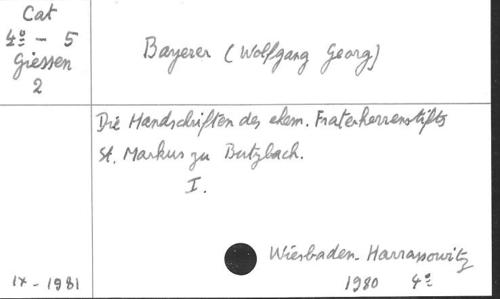 Cat
4º - 5
Giessen
2
Bayerer (Wolfgang Georg)
Die Handschriften des ehem. Fraterherrenstifts
St. Markus zu Butzbach.
I.
Wiesbaden. Harrassowitz
1980 4º
IX - 1981